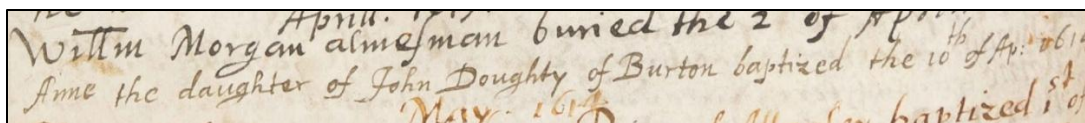 Aprill.
Willm Morgan almesman buried the 2 of Ap
Anne the daughter of John Doughty of Burton baptized the 10th of Ap: 1614
May. 1614
baptized 1st of